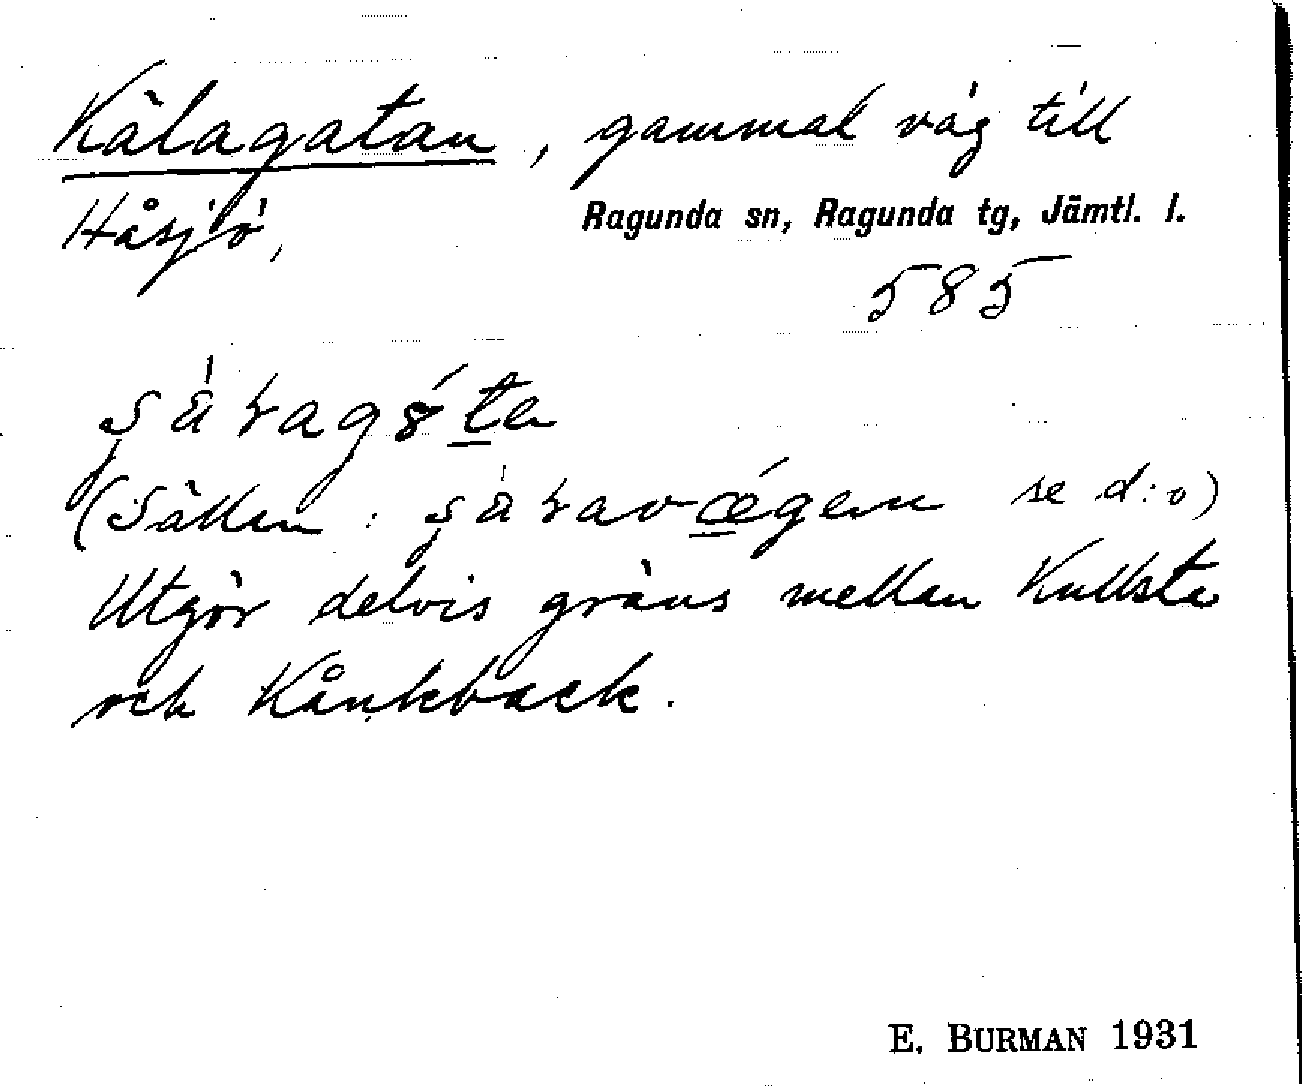 Kälagatan, gammal väg till
Håsjö,
Ragunda sn, Ragunda tg, Jämtl. l.
585
(Sällan : se d:o)
Utgör delvis gräns mellan Kullsta
och Kånkback.
E. BURMAN 1931